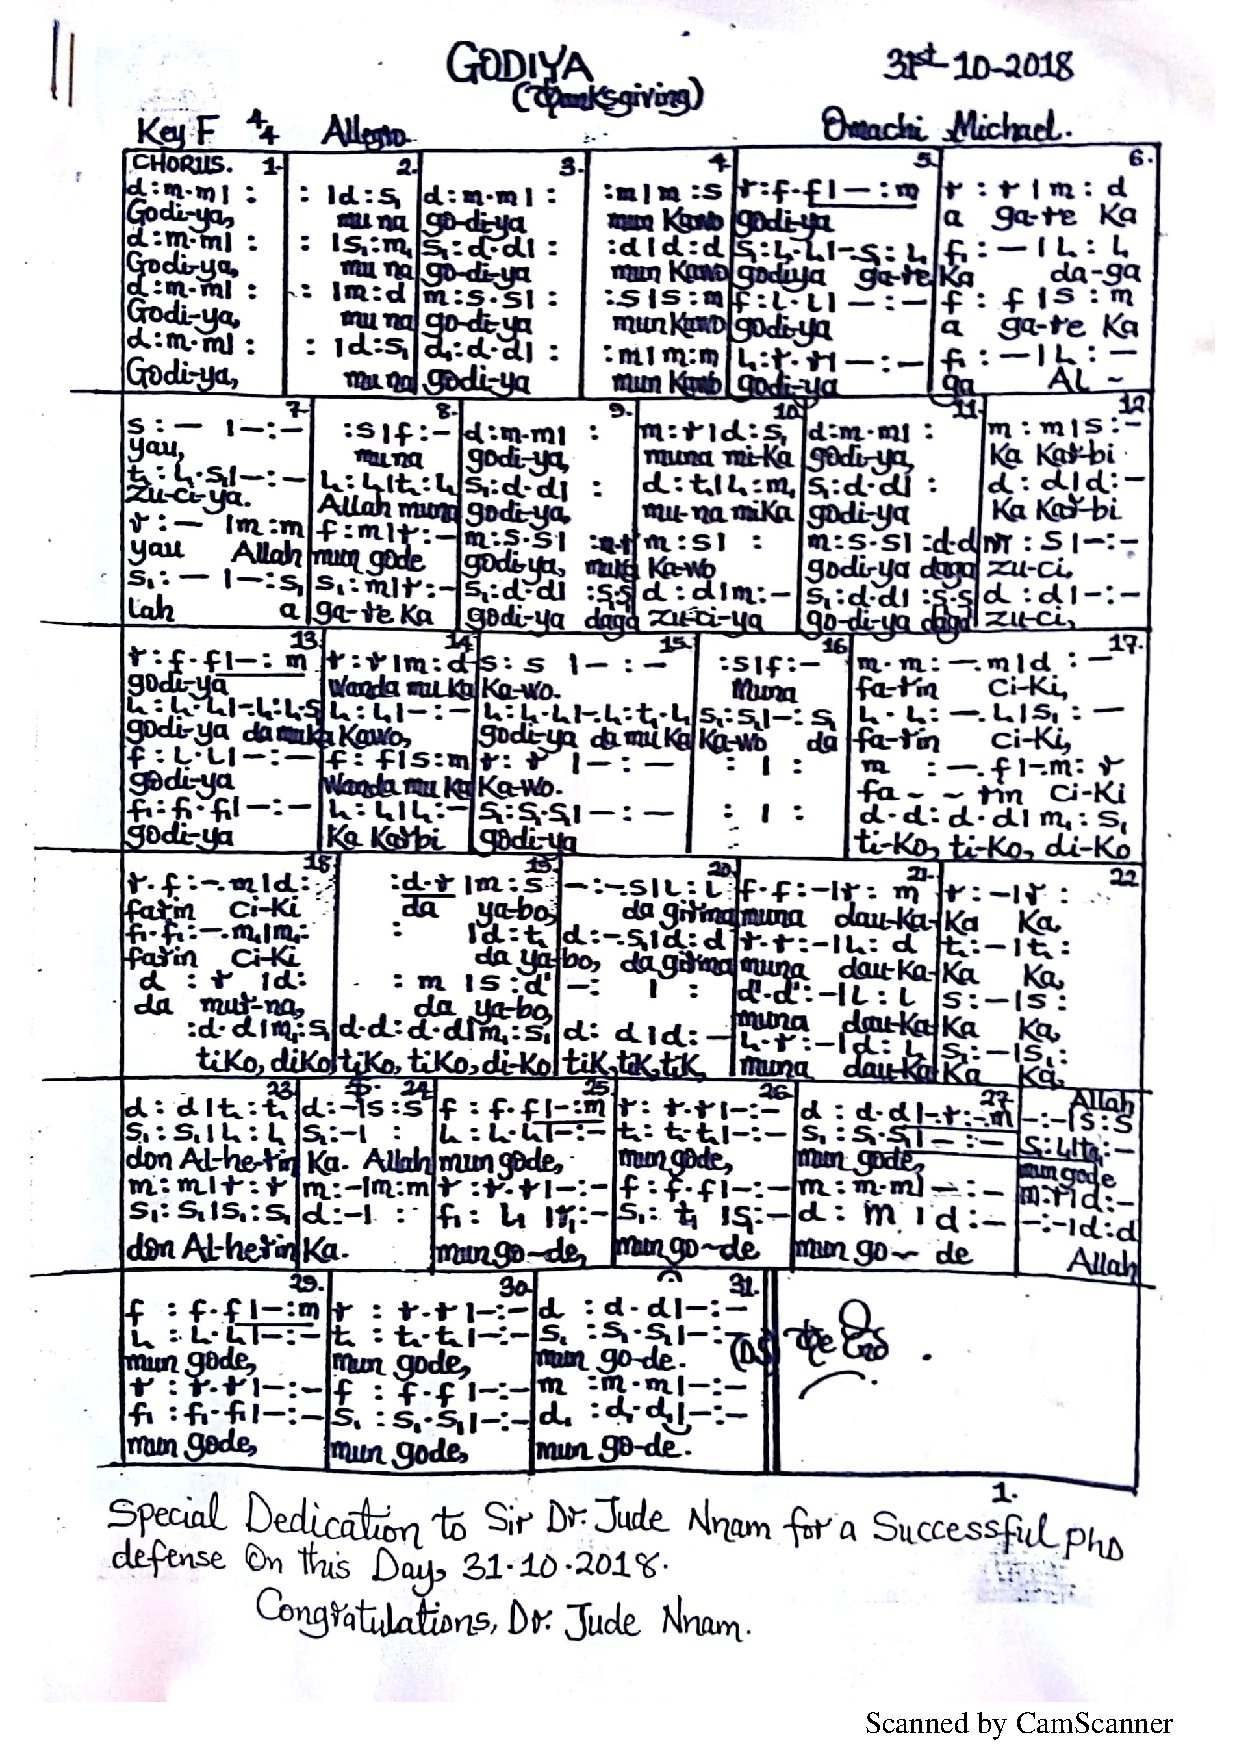 11
GODIYA 31st-10-2018
(Thanksgiving)
Key F 4/4 Allegro Omachi Michael.
CHORUS. 1. 2. 3. 4. 5. 6.
d:m·m| : : |d:s, d:m·m| : :m|m:s r:f·f|—:m r:r|m:d
Godi-ya, mu na go-di-ya mun Kawo godi-ya a ga-re Ka
d:m·m| : : |s,:m, s,:d·d| : :d|d:d s,:l,·l,|-s,:l, f,:—|l,:l,
Godi-ya, mu na go-di-ya mun Kawo godiya ga-re Ka da-ga
d:m·m| : : |m:d m:s·s| : :s|s:m f:l·l|—:— f:f|s:m
Godi-ya, mu na go-di-ya mun Kawo godi-ya a ga-re Ka
d:m·m| : : |d:s, d,:d·d| : :m|m:m l,:r·r|—:— f,:—|l,:—
Godi-ya, mu na godi-ya mun Kawo godi-ya ga AL -
7. 8. 9. 10. 11. 12
s:—|—:— :s|f:— d:m·m| : m:r|d:s, d:m·m| : m:m|s:-
yau, muna godi-ya, muna mi-Ka godi-ya, Ka Kar-bi
t,:l,·s,|—:— l,:l,|t,:l, s,:d·d| : d:t,|l,:m, s,:d·d| : d:d|d:-
zu-ci-ya. Allah muna godi-ya, mu-na miKa godi-ya Ka Kar-bi
r:—|m:m f:m|r:— m:s·s| m:s| : m:s·s|:d·d :s|—:—
yau Allah mun gode godi-ya, Ka-wo godi-ya daga zu-ci,
s,:—|—:s, s,:m|r:— s,:d·d|:s,·s, d:d|m:— s,:d·d|:s,·s, d:d|—:—
lah a ga-re Ka godi-ya daga zu-ci-ya go-di-ya daga zu-ci,
13. 14. 15. 16. 17.
r:f·f|—:m r:r|m:d s:s|—:— :s|f:— m·m:—·m|d:—
godi-ya Wanda mu Ka Ka-wo. Muna fa-rin ci-Ki,
l,:l,·l,|-l,:l,·s, l,:l,|—:— l,:l,·l,|—·l,:t,·l, s,:s,|—:s, l,·l,:—·l,|s,:—
godi-ya da muka Kawo, godi-ya da mu Ka Ka-wo da fa-rin ci-Ki,
f:l·l|—:— f:f|s:m r:r|—:— : | : m:—·f|—·m:r
godi-ya Wanda mu Ka Ka-wo. fa - - rin ci-Ki
f,:f,·f,|—:— l,:l,|l,:— s,:s,·s,|—:— : | : d·d:d·d|m,:s,
godi-ya Ka Karbi godi-ya ti-Ko, ti-Ko, di-Ko
18. 19. 20. 21. 22
r·f:—·m|d: :d·r|m:s —:—·s|l:l f·f:—|r:m r:—|r:
farin ci-Ki da ya-bo, da girma muna dau-Ka- Ka Ka,
f,·f,:—·m,|m,: : |d:t, d:—·s,|d:d r·r:—|l,:d t,:—|t,:
farin ci-Ki da ya-bo, da girma muna dau-Ka- Ka Ka,
d:r|d: :m|s:d' —: | : d'·d':—|l:l s:—|s:
da mur-na, da ya-bo, muna dau-Ka Ka Ka,
:d·d|m,:s, d·d:d·d|m,:s, d:d|d:— l,·r:—|d:l, s,:—|s,:
tiKo, diKo tiKo, tiKo, di-Ko tiK,tiK,tiK, muna dau-Ka Ka Ka,
23. 24. 25. 26. 27. Allah
d:d|t,:t, d:—|s:s f:f·f|—:m r:r·r|—:— d:d·d|—·r:—·m —:—|s:s
s,:s,|l,:l, s,:—| : l,:l,·l,|—:— t,:t,·t,|—:— s,:s,·s,|—:—
don Al-herin Ka. Allah mun gode, mun gode, mun gode, mun gode
m:m|r:r m:—|m:m r:r·r|—:— f:f·f|—:— m:m·m|—:— m:r|d:—
s,:s,|s,:s, d:—| : f,:l,|r,:— s,:t,|s,:— d:m|d:— —:—|d:d
don Al-herin Ka. mun go-de, mun go-de mun go- de Allah
29. 30. 31.
f:f·f|—:m r:r·r|—:— d:d·d|—:—
l,:l,·l,|—:— t,:t,·t,|—:— s,:s,·s,|—:— (DS) The End.
mun gode, mun gode, mun go-de.
r:r·r|—:— f:f·f|—:— m:m·m|—:—
f,:f,·f,|—:— s,:s,·s,|—:— d,:d,·d,|—:—
mun gode, mun gode, mun go-de.
1.
Special Dedication to Sir Dr. Jude Nnam for a Successful PhD
defense On this Day, 31·10·2018.
Congratulations, Dr. Jude Nnam.
Scanned by CamScanner